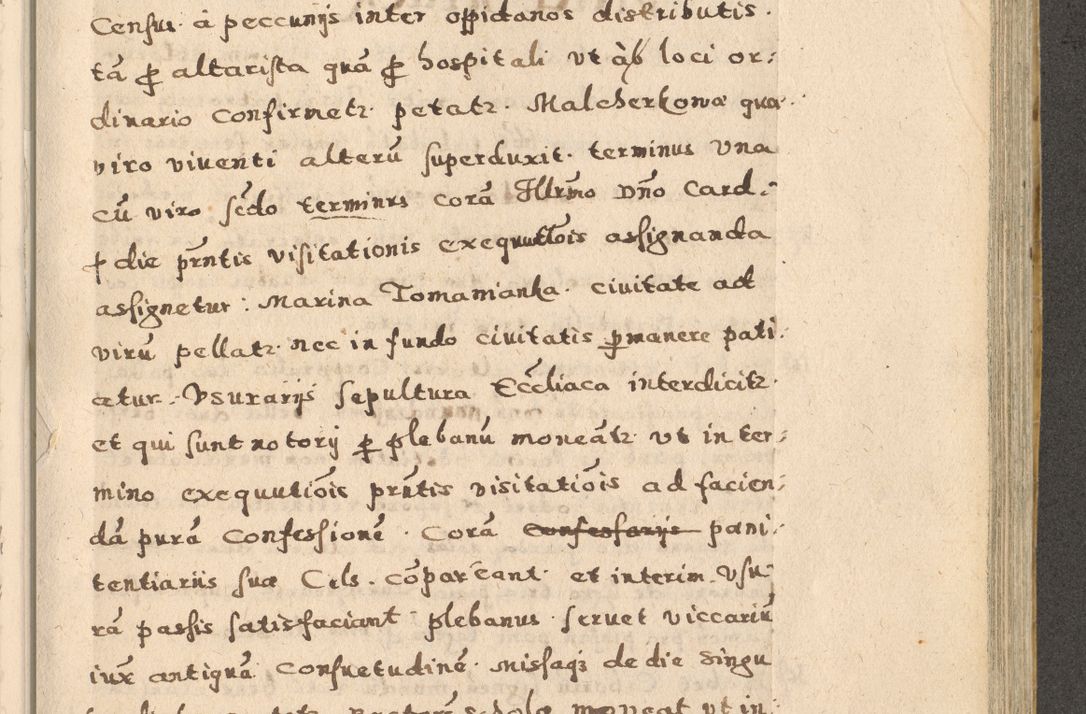 Census à peccunijs inter oppidanos distributis.
tã ꝓ altarista quã ꝓ hospitali ut àb loci or:
dinario confirmetr petatr. Malcherkowa quæ
viro viventi alterũ superduxit. terminus una
cũ viro sẽdo terminus corã Illr̃mo Dño Card:
† die pr̃ntis visitationis exequutõis assignanda
assignetur: Marina Tomanianka civitate ad
virũ pellatr nec in fundo civitatis ꝑmanere pati:
atur. Usurarijs sepultura Ecc̃liaca interdicitr
et qui sunt notorij ꝑ plebanũ moneãtr ut in ter:
mino exequutiõis pr̃ntis visitatiõis ad facien:
dã purã confessionẽ. Corã confessarijs pæni:
tentiariis suæ Cels. cõpareant et interim usu:
rã passis satisfaciant plebanus servet viccariũ
iux̃ antiquã consuetudinẽ. Missaqȝ de die singu